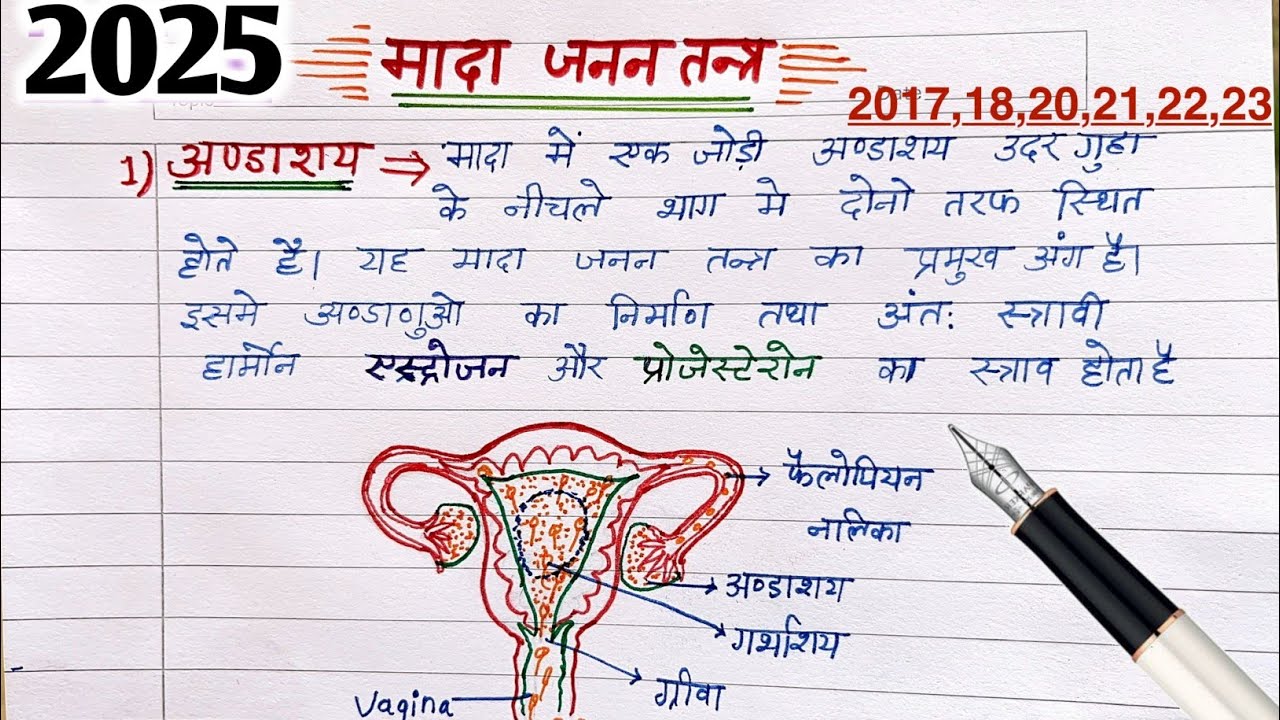 2025
मादा जनन तन्त्र
2017,18,20,21,22,23
1) अण्डाशय ⇒ मादा में एक जोड़ी अण्डाशय उदर गुहा
के नीचले भाग मे दोनो तरफ स्थित
होते है। यह मादा जनन तन्त्र का प्रमुख अंग है।
इसमे अण्डाणुओ का निर्माण तथा अंत: स्त्रावी
हार्मोन एस्ट्रोजन और प्रोजेस्टेरोन का स्त्राव होता है
फैलोपियन
नालिका
अण्डाशय
गर्भाशय
ग्रीवा
Vagina